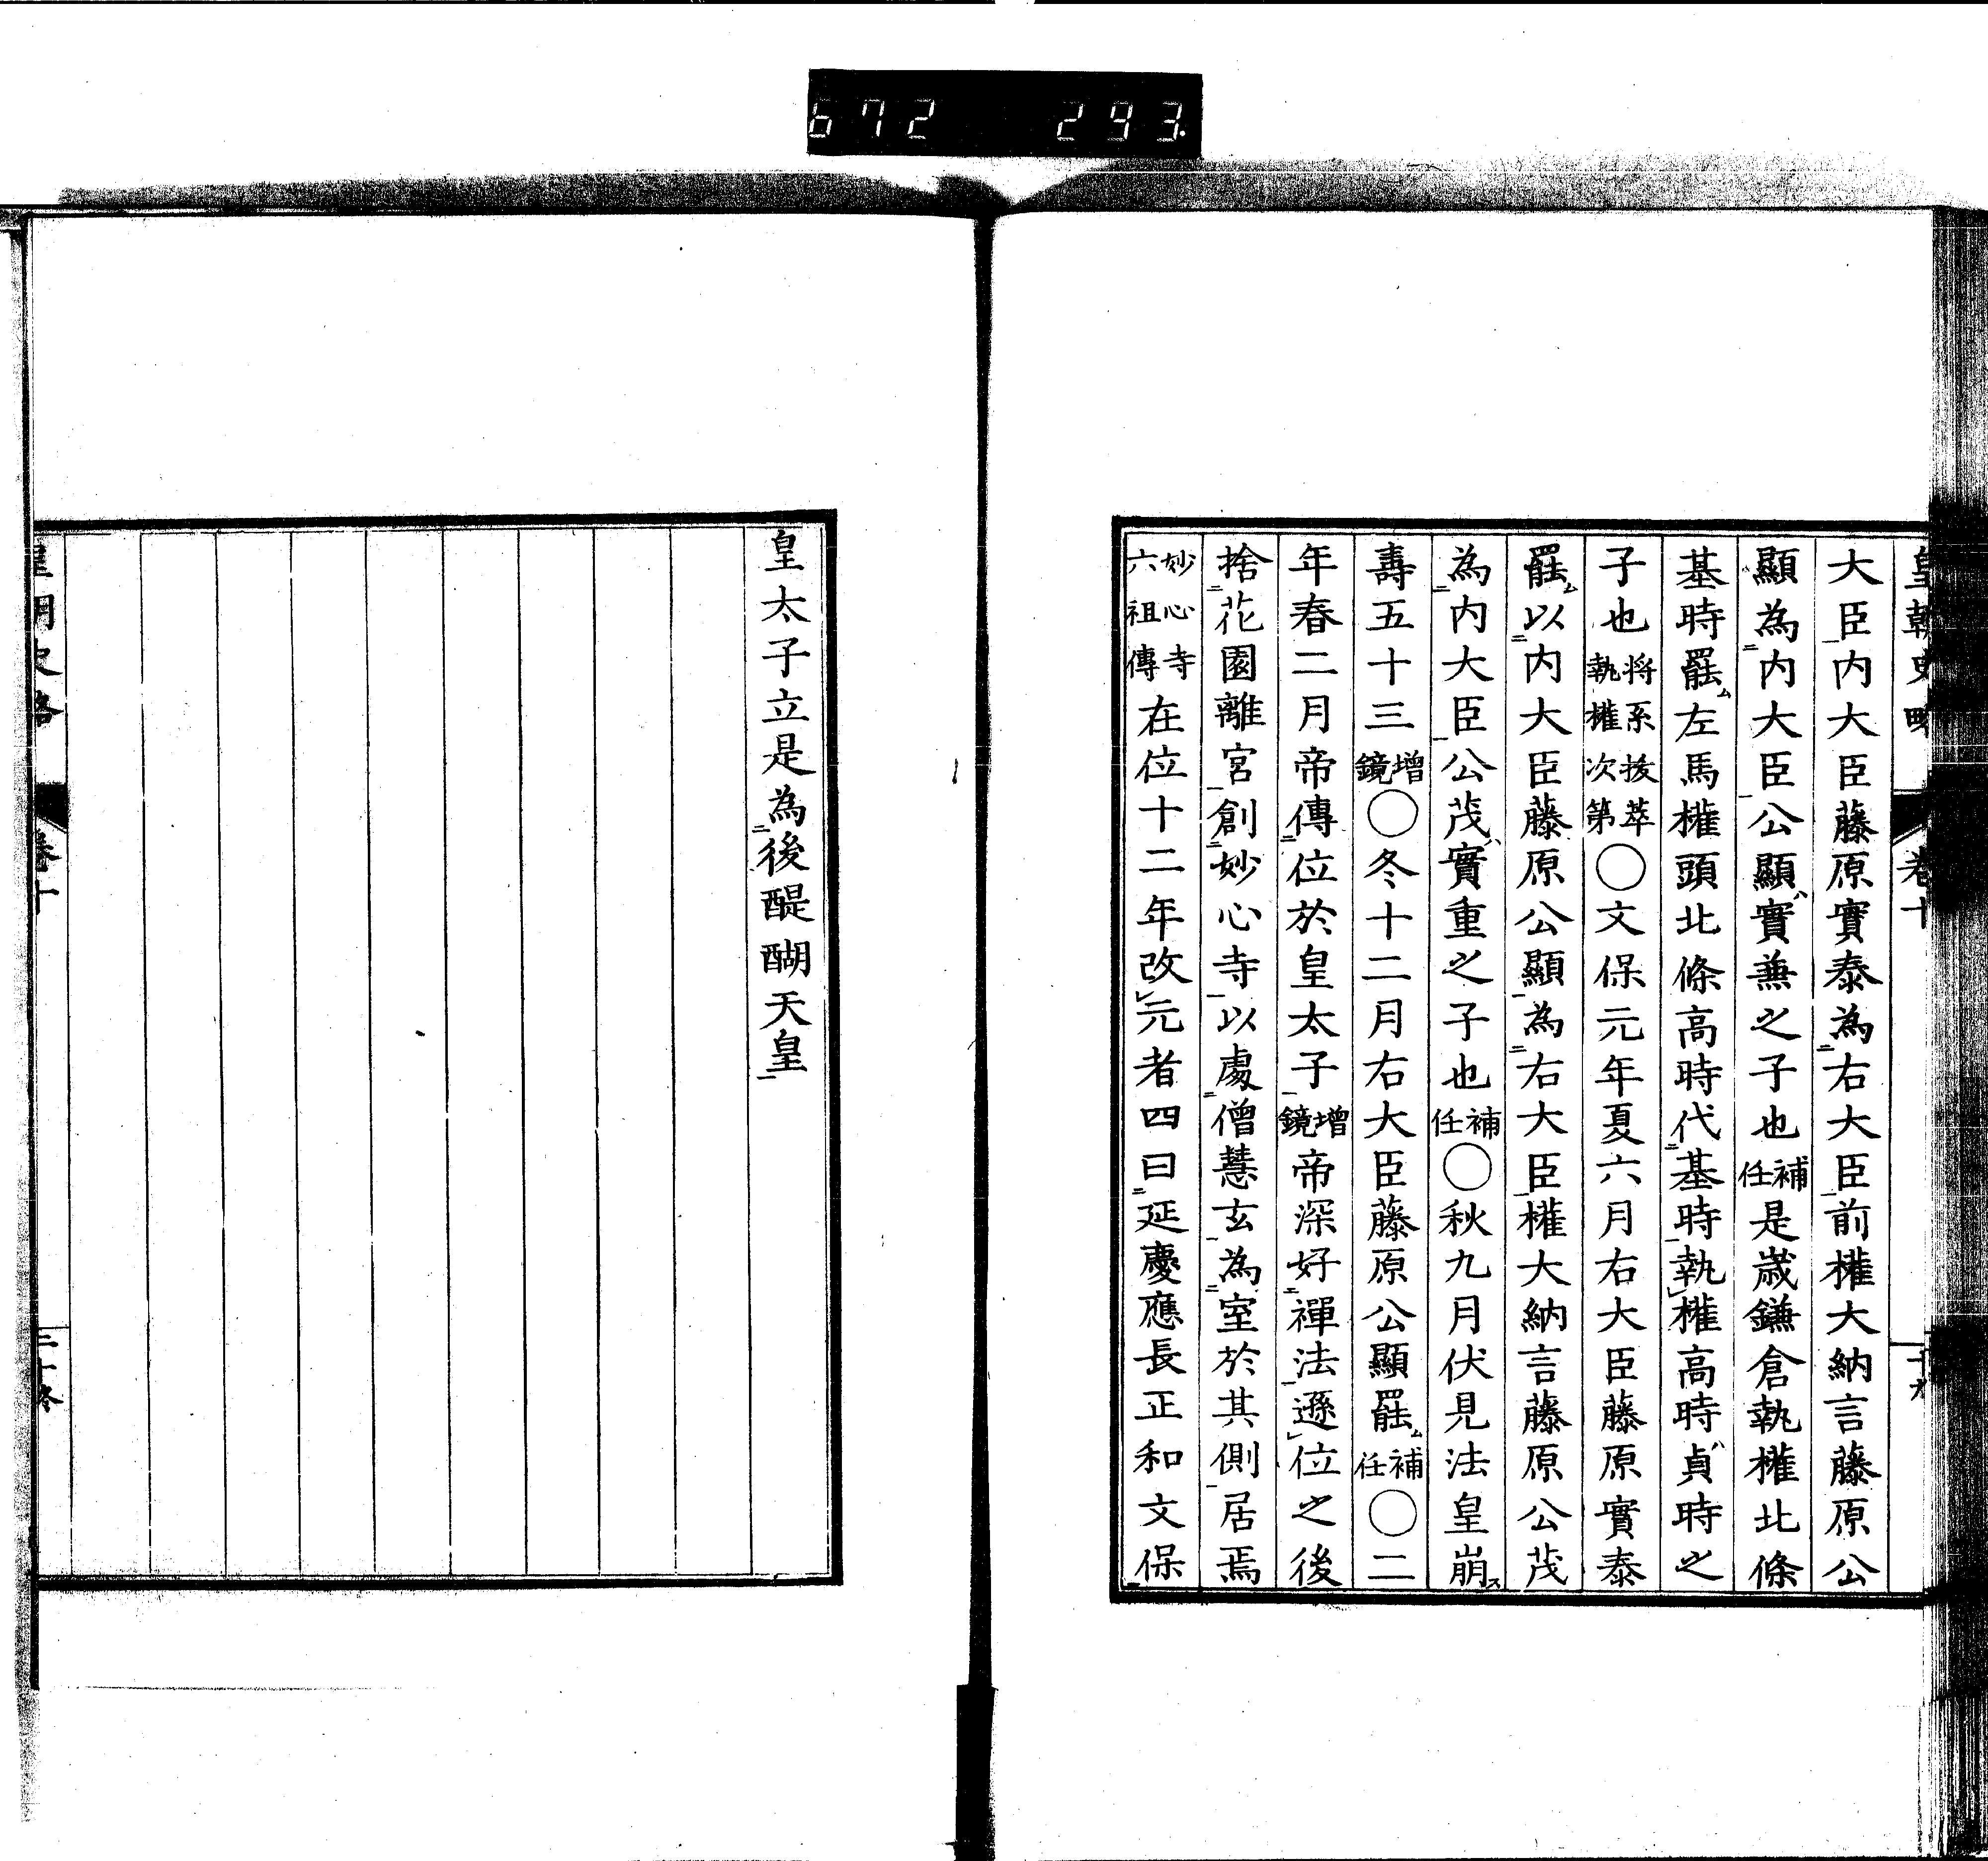 672 293
皇朝史略 卷十
大臣内大臣藤原實泰為右大臣前權大納言藤原公
顯為内大臣公顯實兼之子也補任是歲鎌倉執權北條
基時罷左馬權頭北條高時代基時執權高時貞時之
子也将系抜萃執權次第○文保元年夏六月右大臣藤原實泰
罷以内大臣藤原公顯為右大臣權大納言藤原公茂
為内大臣公茂實重之子也補任○秋九月伏見法皇崩
壽五十三增鏡○冬十二月右大臣藤原公顯罷補任○二
年春二月帝傳位於皇太子增鏡帝深好禪法遜位之後
捨花園離宮創妙心寺以處僧慧玄為室於其側居焉
妙心寺六祖傳在位十二年改元者四曰延慶應長正和文保
皇太子立是為後醍醐天皇
皇朝史略 卷十 二十終